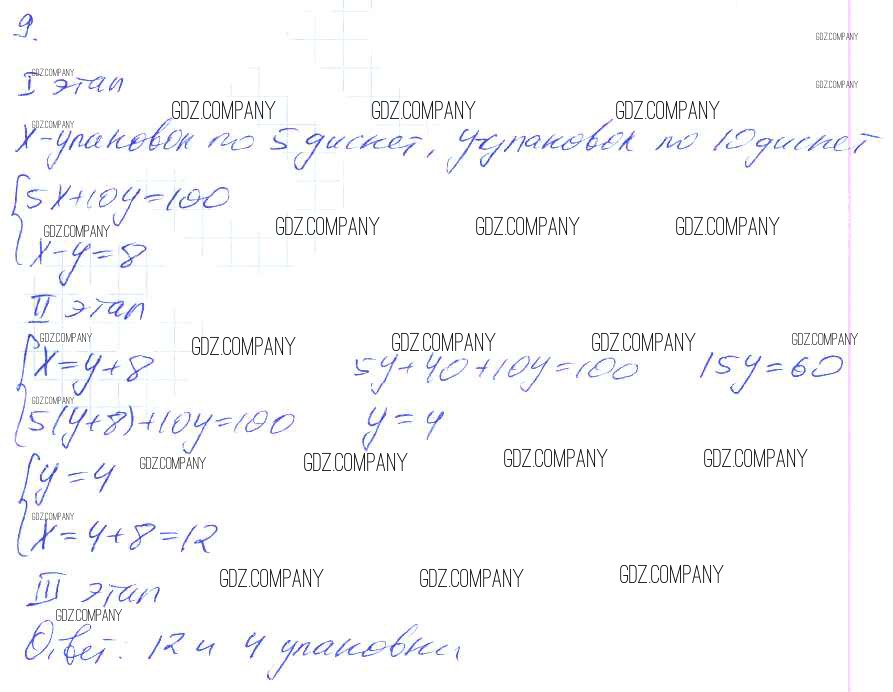 9.
GDZ.COMPANY
GDZ.COMPANY
I этап
GDZ.COMPANY
GDZ.COMPANY GDZ.COMPANY GDZ.COMPANY
GDZ.COMPANY
x-упаковок по 5 дискет, y-упаковок по 10 дискет
5x+10y=100
GDZ.COMPANY GDZ.COMPANY GDZ.COMPANY GDZ.COMPANY
x-y=8
II этап
GDZ.COMPANY GDZ.COMPANY GDZ.COMPANY GDZ.COMPANY GDZ.COMPANY
x=y+8 5y+40+10y=100 15y=60
GDZ.COMPANY
5(y+8)+10y=100 y=4
GDZ.COMPANY GDZ.COMPANY GDZ.COMPANY GDZ.COMPANY
y=4
GDZ.COMPANY
x=4+8=12
GDZ.COMPANY GDZ.COMPANY GDZ.COMPANY
III этап
GDZ.COMPANY
Ответ: 12 и 4 упаковки